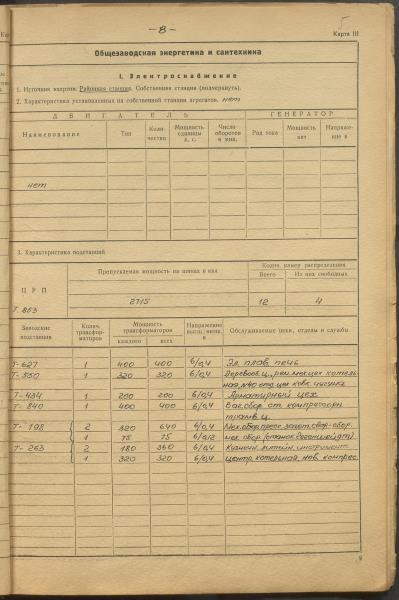 — 8 —
5
Карта III
Общезаводская энергетика и сантехника
I. Электроснабжение
1. Источник энергии. Районная станция. Собственная станция (подчеркнуть).
2. Характеристика установленных на собственной станции агрегатов. нет
ДВИГАТЕЛЬ ГЕНЕРАТОР
Наименование Тип Коли-чество Мощность единицы л. с. Число оборотов в мин. Род тока Мощность квт Напряже-ние в
нет
3. Характеристика подстанций
Пропускаемая мощность на шинах в ква
Колич. камер распределения
Всего Из них свободных
ЦРП
2715 12 4
Т. 853
Заводские подстанции Колич. трансфор-маторов Мощность трансформаторов каждого всех Напряжение в Обслуживаемые цехи, отделы и службы
Т-627 1 400 400 6/0,4 Эл. плав. печь
Т-550 1 320 320 6/0,4 Деревооб. ц., рем. мех. цех котель
ная, отд. цех ковк. чугуна
Т-434 1 200 200 6/0,4 Арматурный цех
Т-840 1 400 400 6/0,4 Ваг. сбор от компрессорн
трамв. ц.
Т-198 2 320 640 6/0,4 Мех. сбор. пресс. загот. свар. обор.
1 75 75 6/0,2 мех. сбор.
Т-263 2 180 360 6/0,4 Кузнечн. литейн. инструмент
1 320 320 6/0,4 центр. котельная, нов. компрес.